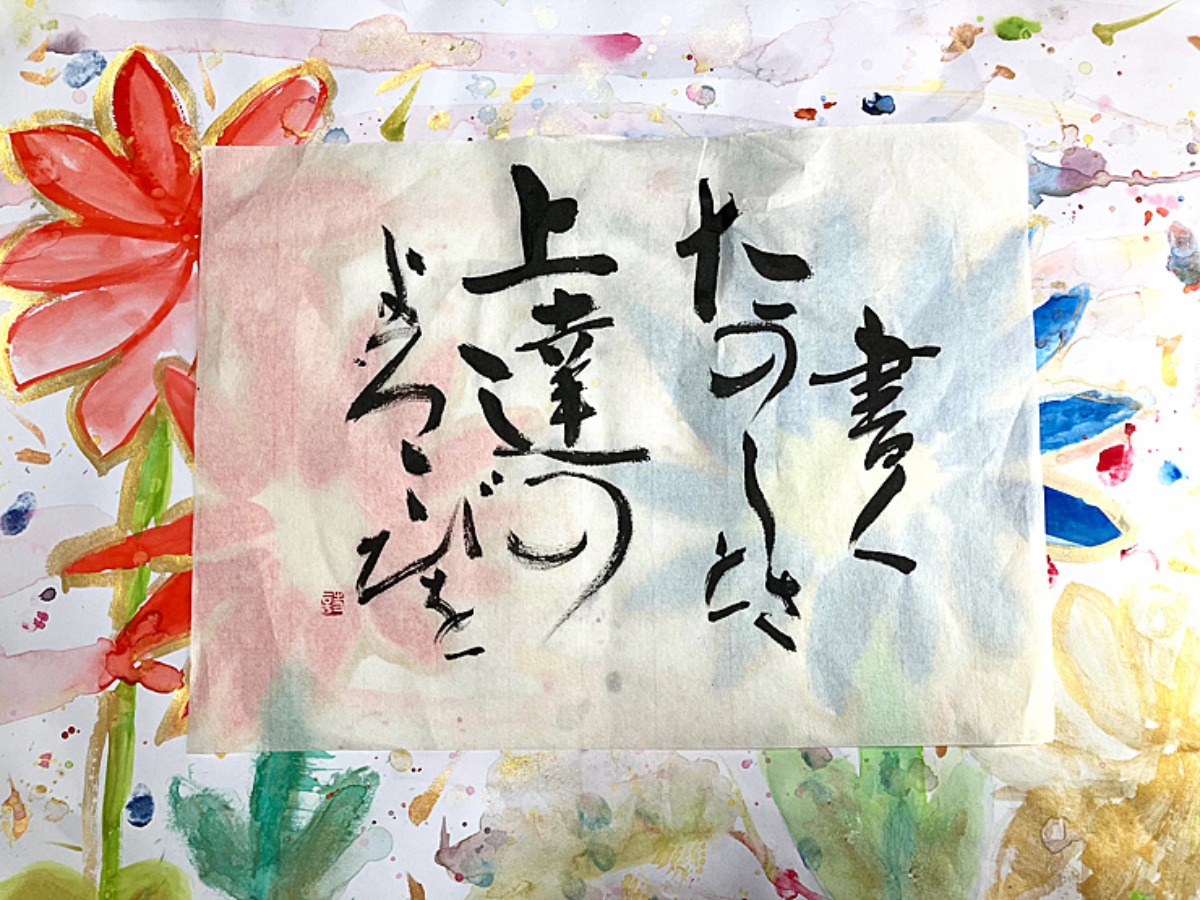 書く
たのしさと
上達の
よろこびを